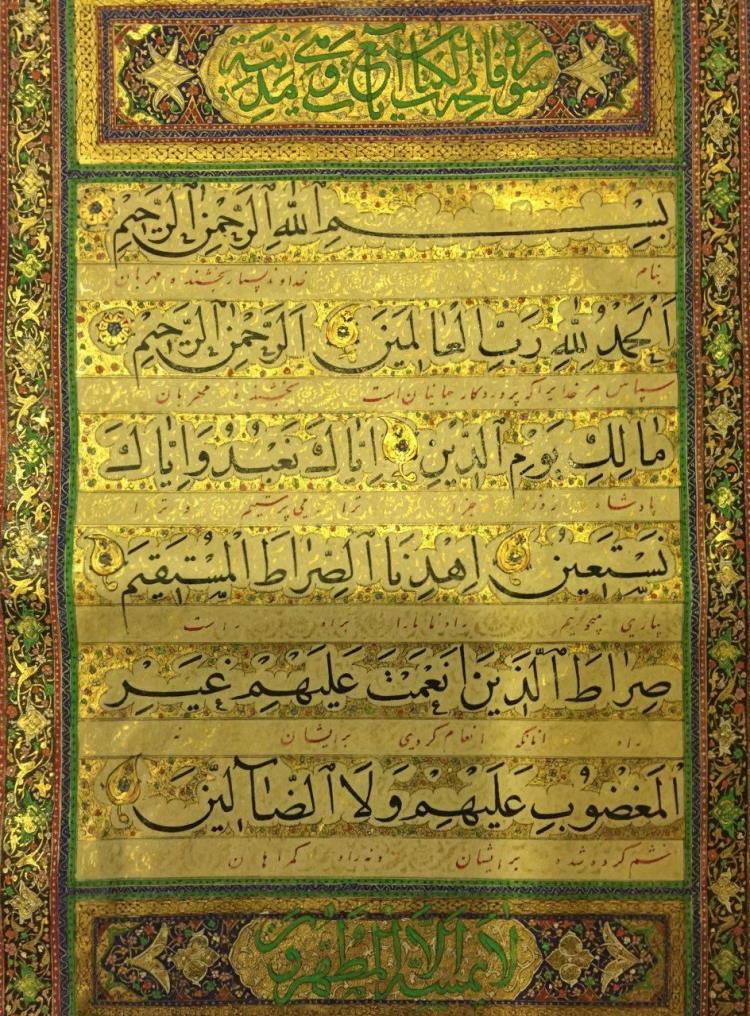 سورة فاتحة الكتاب سبع آيات وهي مدنية
بِسْمِ اللّٰهِ الرَّحْمٰنِ الرَّحِيمِ
بنام خداوند بسیار بخشنده مهربان
اَلْحَمْدُ لِلّٰهِ رَبِّ الْعَالَمِينَ اَلرَّحْمٰنِ الرَّحِيمِ
سپاس مر خدایرا که پروردکار جهانیان است بخشنده مهربان
مَالِكِ يَوْمِ الدِّينِ اِيَّاكَ نَعْبُدُ وَاِيَّاكَ
پادشاه روز جزا ترا می پرستیم و ترا
نَسْتَعِينُ اِهْدِنَا الصِّرَاطَ الْمُسْتَقِيمَ
یاری میجوییم راه نما مارا براه راست
صِرَاطَ الَّذِينَ اَنْعَمْتَ عَلَيْهِمْ غَيْرِ
راه انانکه انعام کردی بر ایشان نه
الْمَغْضُوبِ عَلَيْهِمْ وَلَا الضَّآلِّينَ
خشم کرده شده بر ایشان و نه راه کمراهان
لا يمسه الا المطهرون